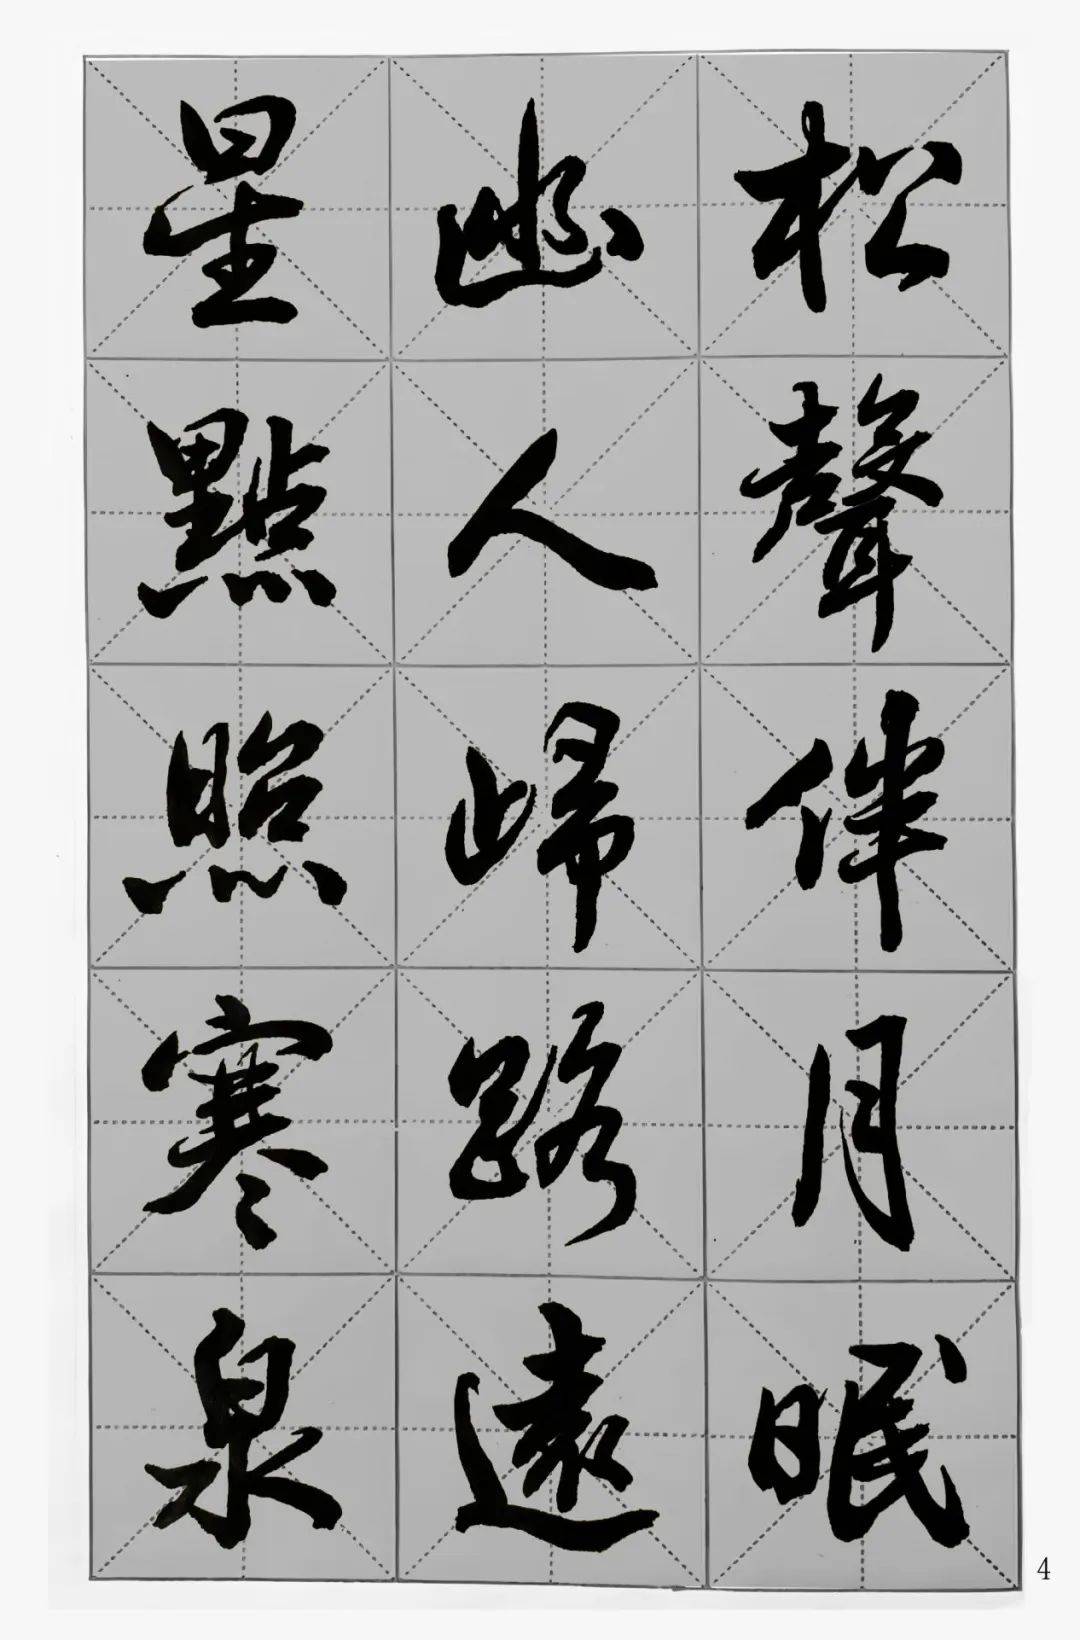 松聲伴月眠
幽人歸路遠
星點照寒泉
4